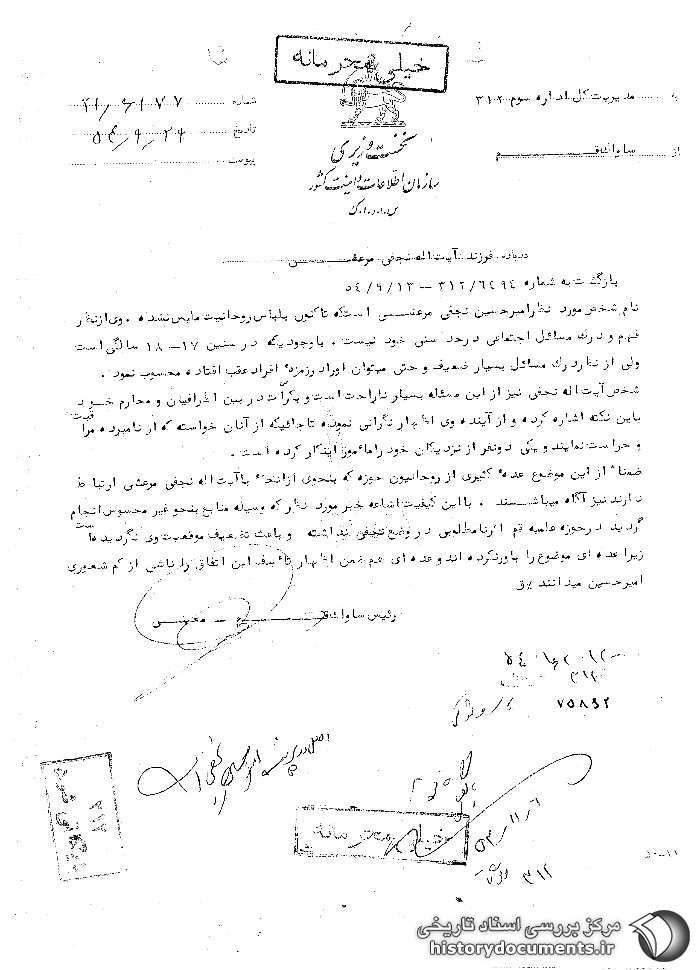 خیلی محرمانه
به مدیریت کل اداره سوم ۳۱۲
شماره ۲۱/۶۱۷۷
از ساواک قم
تاریخ ۵۴/۹/۲۴
پیوست
نخست وزیری
سازمان اطلاعات و امنیت کشور
س.ا.و.ا.ک
درباره فرزند آیت اله نجفی مرعشی
بازگشت به شماره ۳۱۲/۶۴۹۴ – ۵۴/۹/۱۳
نام شخص مورد نظر امیرحسین نجفی مرعشی است که تاکنون بلباس روحانیت ملبس نشده . وی از نظر
فهم و درک مسائل اجتماعی در حد سنی خود نیست . با وجودیکه در سنین ۱۷ – ۱۸ سالگی است
ولی از نظر درک مسائل بسیار ضعیف و حتی میتوان او را در زمره افراد عقب افتاده محسوب نمود .
شخص آیت اله نجفی نیز از این مسئله بسیار ناراحت است و بکرات در بین اطرافیان و محارم خود
باین نکته اشاره کرده و از آینده وی اظهار نگرانی نموده تا جائیکه از آنان خواسته که از نامبرده مراقبت
و حراست نمایند و یکی دو نفر از نزدیکان خود را مامور اینکار کرده است .
ضمنا از این موضوع عده کثیری از روحانیون حوزه که بنحوی از انحاء با آیت اله نجفی مرعشی ارتباط
دارند نیز آگاه میباشند . با این کیفیت اشاعه خبر مورد نظر که وسیله منابع بنحو غیر محسوس انجام
گردید در حوزه علمیه قم اثر نامطلوبی در وضع نجفی نداشته و باعث تضعیف موقعیت وی نگردیده است
زیرا عده ای موضوع را باور نکرده اند و عده ای هم ضمن اظهار تاسف این اتفاق را ناشی از کم شعوری
امیرحسین میدانند
رئیس ساواک قم – معینی
۳۱۲
۷۵۸۴۲
بایگانی شود
۳۱۲
خیلی محرمانه
۳۱۲
مرکز بررسی اسناد تاریخی
historydocuments.ir